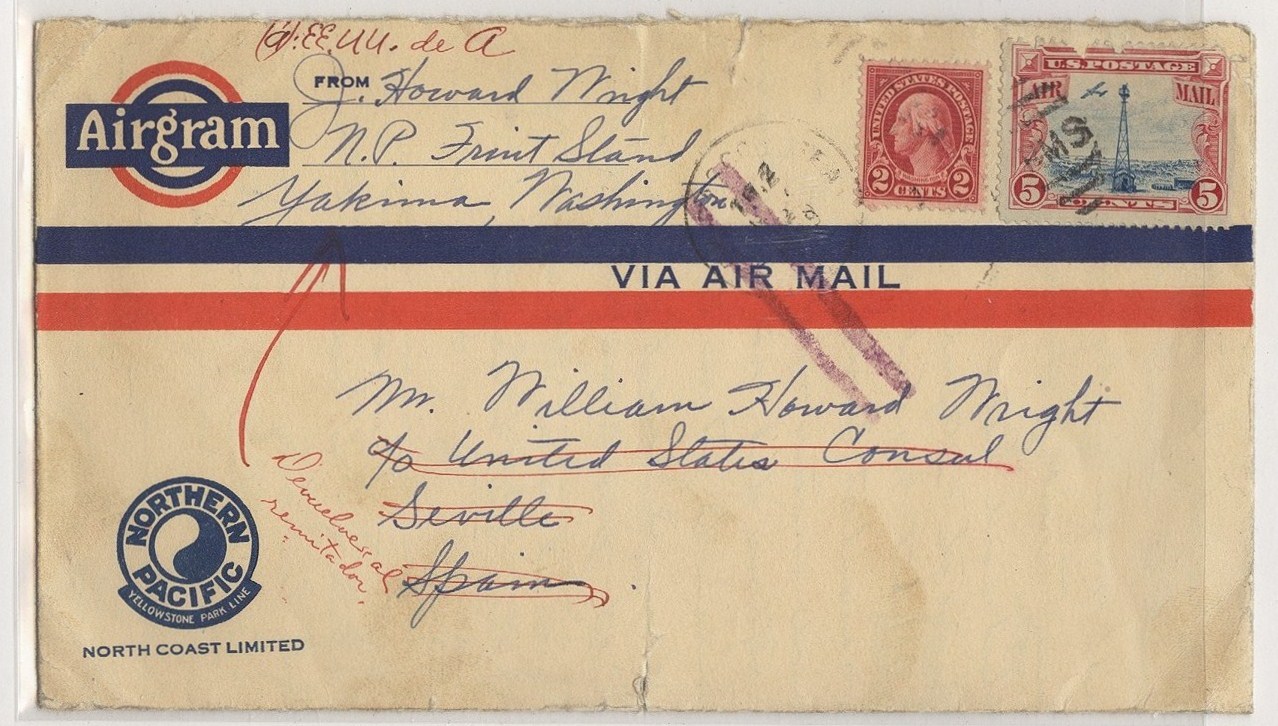 EE.UU. de A
Airgram
FROM J. Howard Wright
N.P. Fruit Stand
Yakima, Washington
UNITED STATES POSTAGE
2 CENTS 2
U.S. POSTAGE
AIR MAIL
5 CENTS 5
RMS
VIA AIR MAIL
Mr. William Howard Wright
c/o United States Consul
Seville
Spain.
Devuelvase al
remitador.
NORTHERN
PACIFIC
YELLOWSTONE PARK LINE
NORTH COAST LIMITED